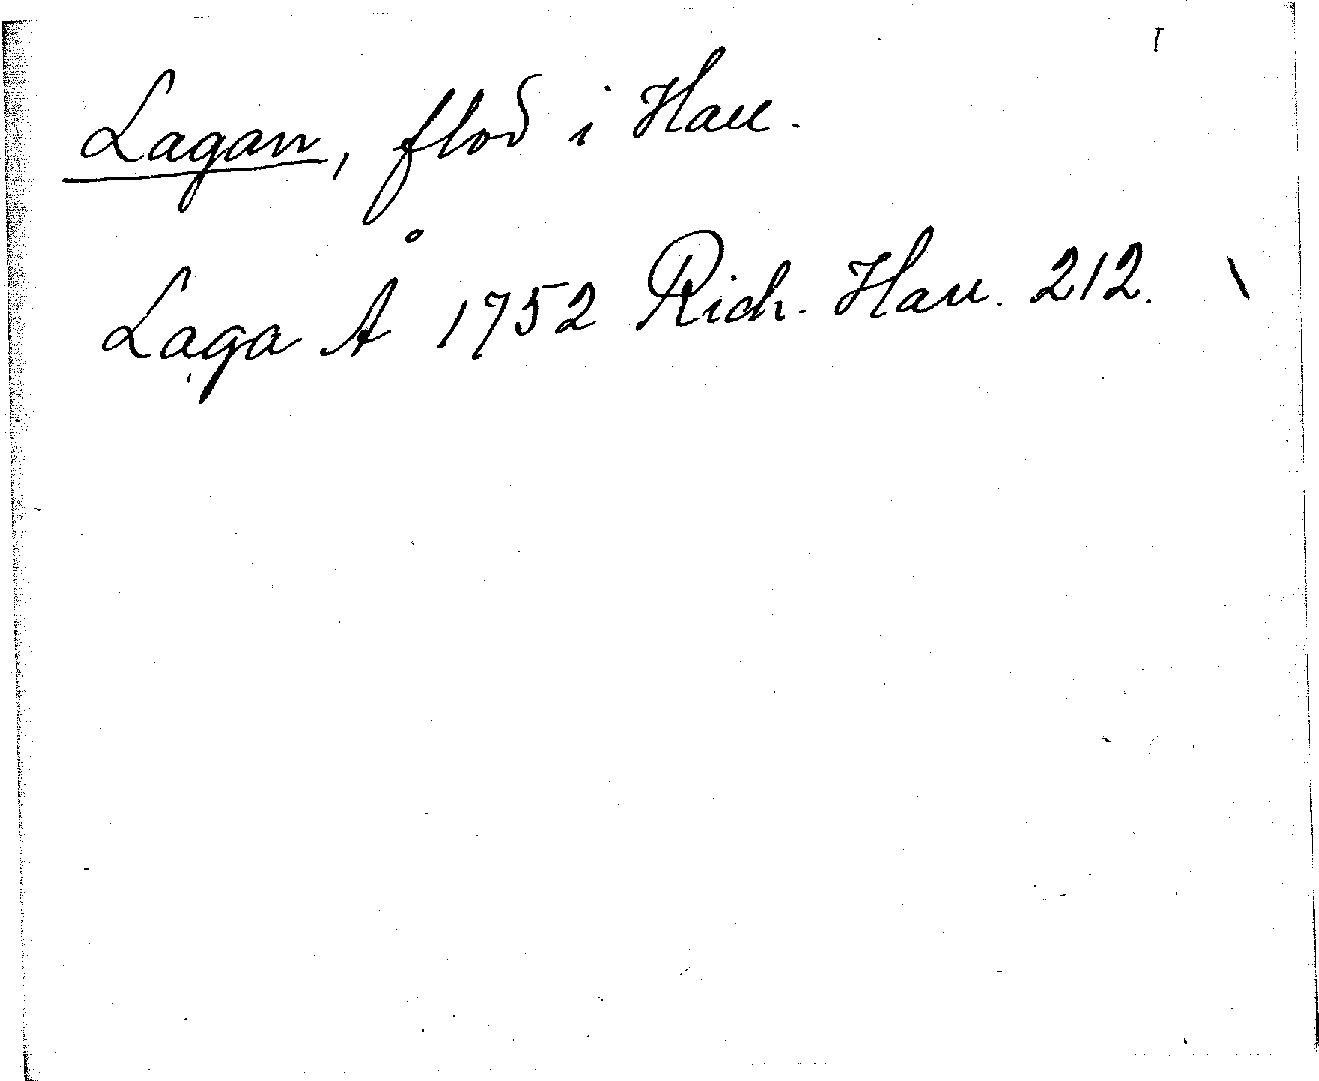 Lagan, flod i Hall.
Laga Å 1752 Rich. Hall. 212.